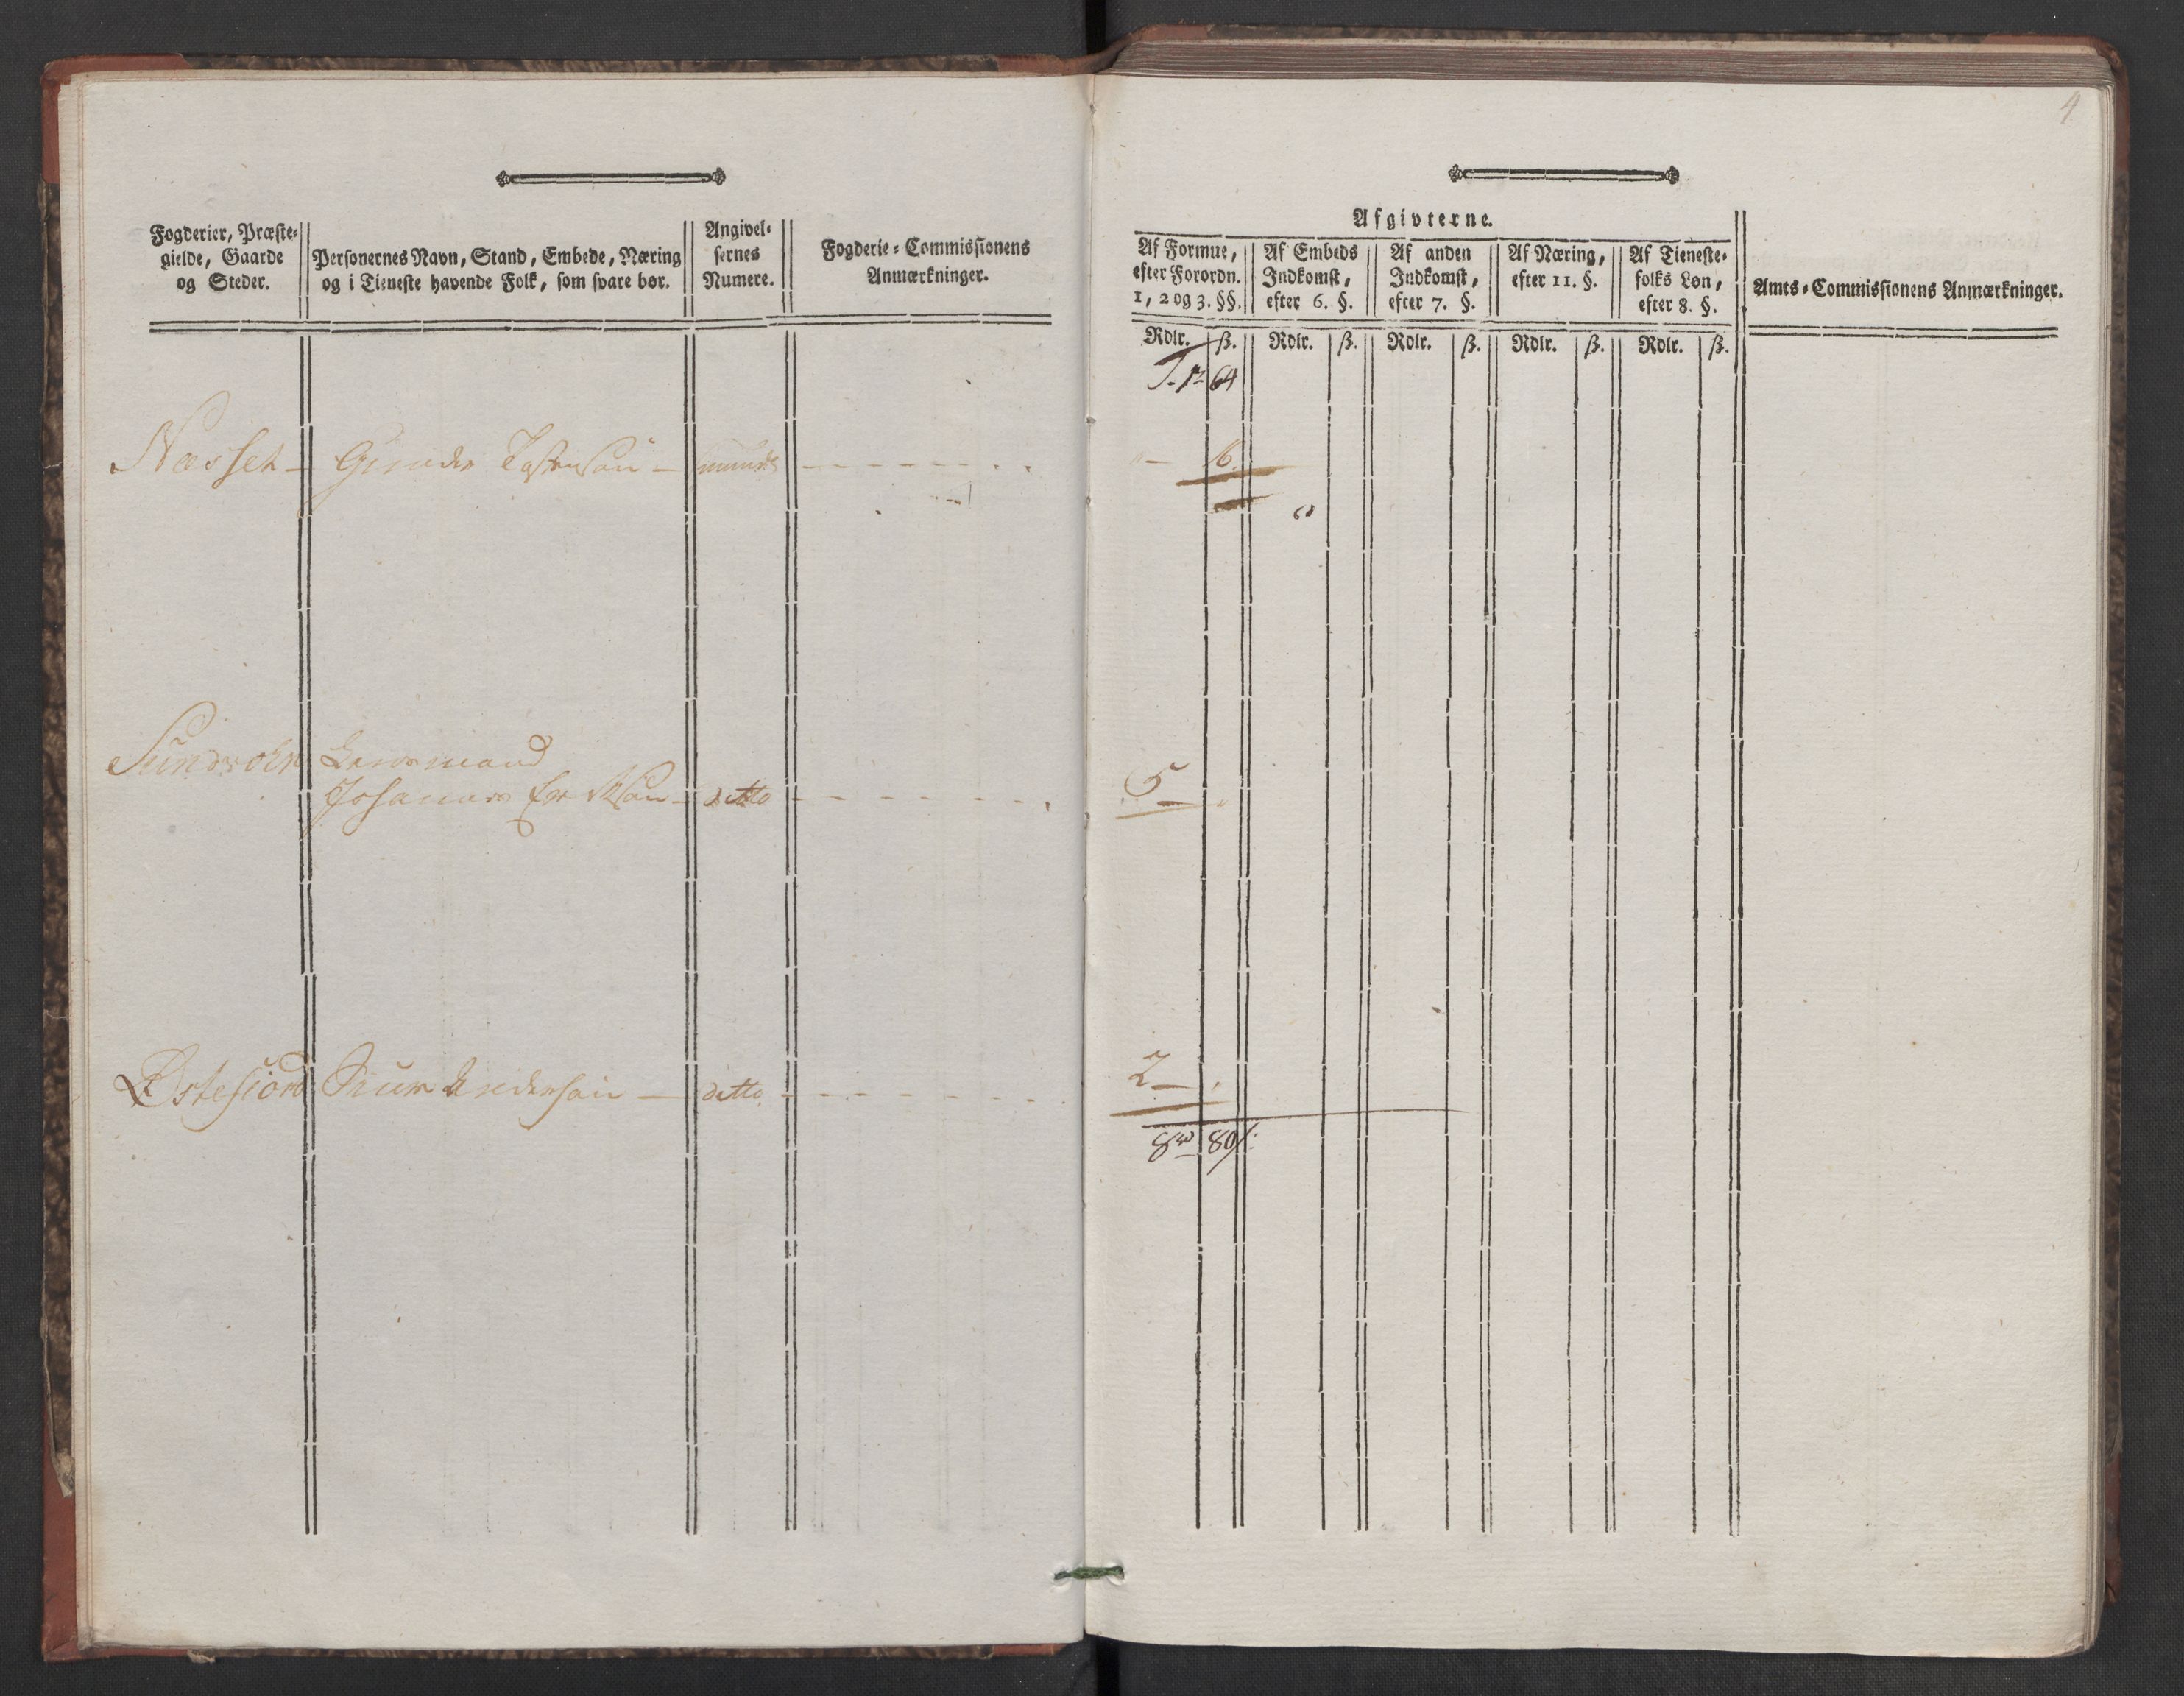 4
Fogderier, Præste-
gielde, Gaarde
og Steder.
Personernes Navn, Stand, Embede, Næring
og i Tieneste havende Folk, som svare bør.
Angivel-
sernes
Numere.
Fogderie-Commissionens
Anmærkninger.
Afgivterne.
Af Formue,
efter Forordn.
1, 2 og 3. §§.
Af Embeds
Indkomst,
efter 6. §.
Af anden
Indkomst,
efter 7. §.
Af Næring,
efter 11. §.
Af Tieneste-
folks Løn,
efter 8. §.
Amts-Commissionens Anmærkninger.
Rdlr. ß. Rdlr. ß. Rdlr. ß. Rdlr. ß. Rdlr. ß.
T. 1 64
Næsset - Gunder - 16
Lensmand
Johannes - ditto 5
Østefiord Anderson - ditto 2
8 80